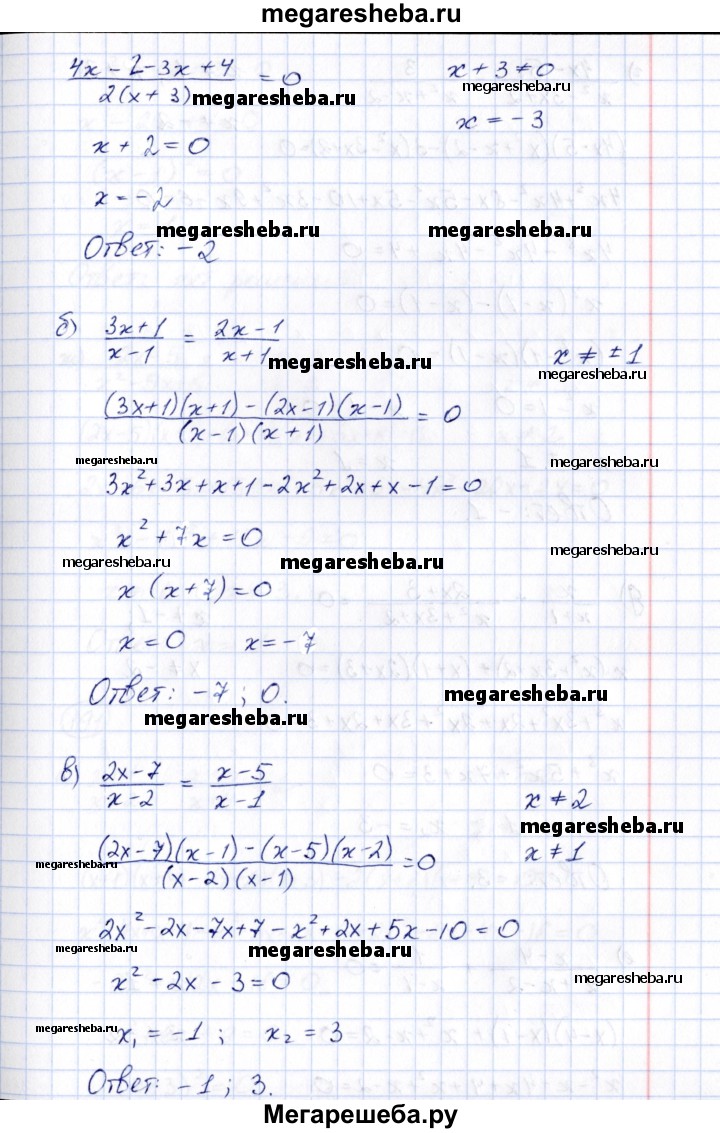 megaresheba.ru
(4x - 2 - 3x + 4)/(2(x + 3)) = 0    x + 3 ≠ 0
megaresheba.ru    megaresheba.ru
x + 2 = 0    x = - 3
x = - 2
megaresheba.ru    megaresheba.ru
Ответ: - 2
б) (3x+1)/(x-1) = (2x-1)/(x+1)    x ≠ ±1
megaresheba.ru    megaresheba.ru
((3x+1)(x+1) - (2x-1)(x-1))/((x-1)(x+1)) = 0
megaresheba.ru    megaresheba.ru
3x² + 3x + x + 1 - 2x² + 2x + x - 1 = 0
x² + 7x = 0
megaresheba.ru    megaresheba.ru    megaresheba.ru
x (x + 7) = 0
x = 0    x = - 7
Ответ: - 7 ; 0.    megaresheba.ru
megaresheba.ru
в) (2x-7)/(x-2) = (x-5)/(x-1)    x ≠ 2
megaresheba.ru
((2x-7)(x-1) - (x-5)(x-2))/((x-2)(x-1)) = 0    x ≠ 1
megaresheba.ru
2x² - 2x - 7x + 7 - x² + 2x + 5x - 10 = 0
megaresheba.ru    megaresheba.ru
x² - 2x - 3 = 0    megaresheba.ru
megaresheba.ru    x₁ = - 1 ;    x₂ = 3
Ответ: - 1 ; 3.
Мегарешеба.ру